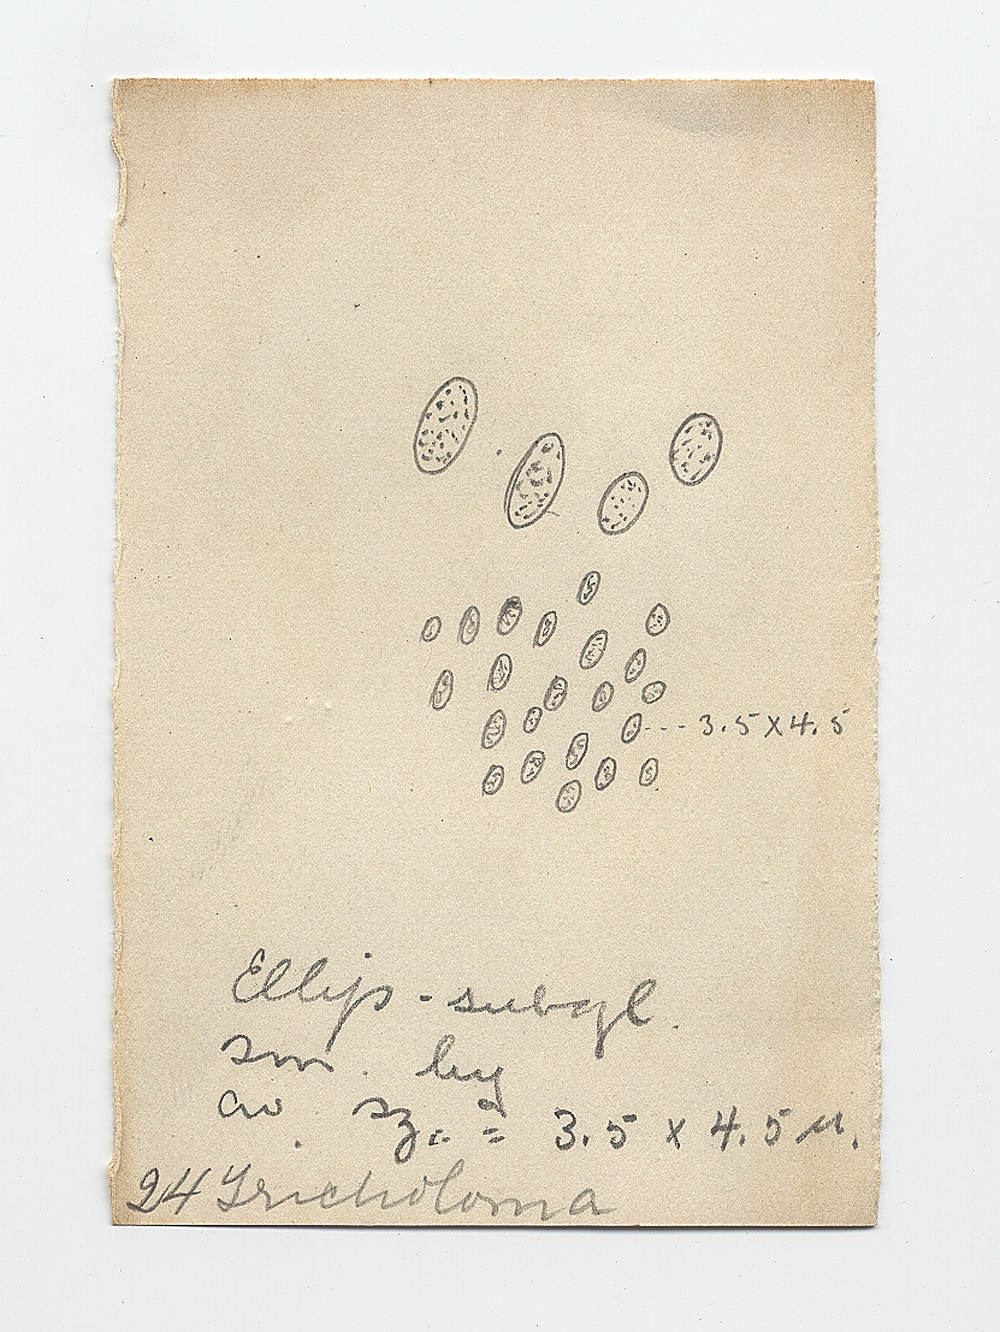 ---3.5X4.5
Ellip - subgl.
sm. hy
av. sz. = 3.5 x 4.5 µ.
24 Tricholoma